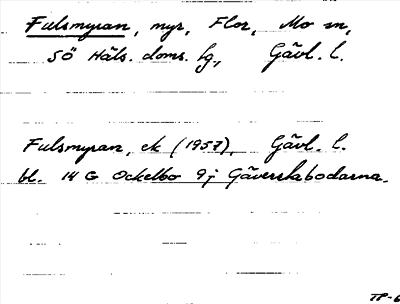 Fulsmyran, myr, Flor, Mo sn,
SÖ Häls. doms. fg, Gävl. l.
Fulsmyran, ek (1957), Gävl. l.
bl. 14 G Ockelbo 9j Gäverslabodarna.
TP-6